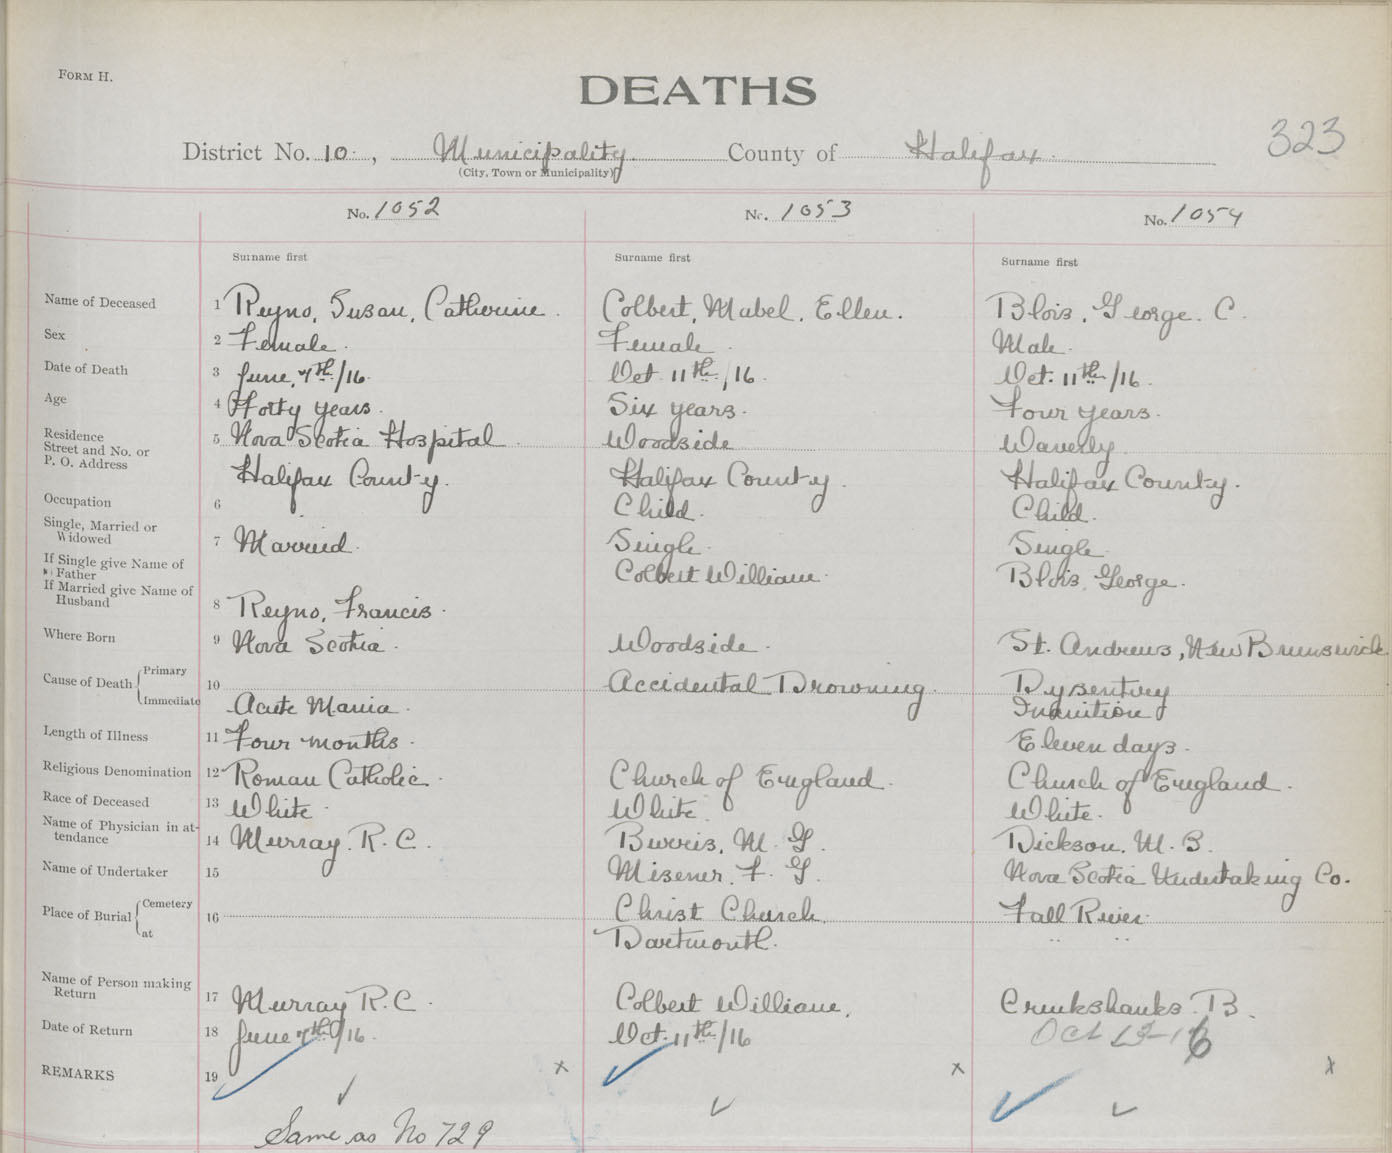 FORM H.
DEATHS
323
District No. 10, Municipality County of Halifax
(City, Town or Municipality)
No. 1052 No. 1053 No. 1054
Surname first Surname first Surname first
Name of Deceased 1 Reyno, Susan, Catherine. Colbert, Mabel, Ellen. Blois, George. C.
Sex 2 Female. Female. Male.
Date of Death 3 June, 7th/16. Oct. 11th/16. Oct. 11th/16.
Age 4 Forty years. Six years. Four years.
Residence
Street and No. or
P. O. Address
5 Nova Scotia Hospital. Woodside Waverly
Halifax County. Halifax County. Halifax County.
Occupation 6 Child. Child.
Single, Married or
Widowed
7 Married. Single. Single.
If Single give Name of
Father
Colbert William. Blois, George.
If Married give Name of
Husband
8 Reyno, Francis.
Where Born 9 Nova Scotia. Woodside. St. Andrews, New Brunswick
Cause of Death Primary 10 Accidental Drowning. Dysentery
Immediate Acute Mania. Inanition
Length of Illness 11 Four months. Eleven days.
Religious Denomination 12 Roman Catholic. Church of England. Church of England.
Race of Deceased 13 White. White. White.
Name of Physician in at-
tendance
14 Murray. R. C. Burris, M. G. Dickson, M. B.
Name of Undertaker 15 Misener, F. G. Nova Scotia Undertaking Co.
Place of Burial Cemetery 16 Christ Church. Fall River.
at Dartmouth. " "
Name of Person making
Return
17 Murray R. C. Colbert William. Cruikshanks. B.
Date of Return 18 June 7th/16. Oct. 11th/16 Oct 13-16
REMARKS 19 x x x
Same as No 729